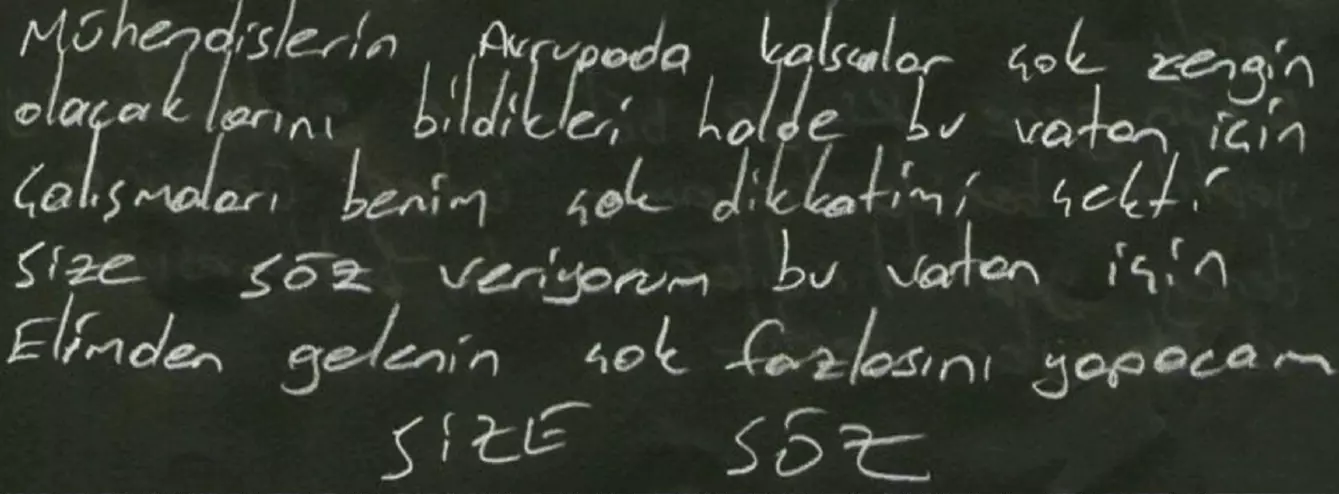 Mühendislerin Avrupada kalsalar çok zengin
olacaklarını bildikleri halde bu vatan için
çalışmaları benim çok dikkatimi çekti
size söz veriyorum bu vatan için
Elimden gelenin çok fazlasını yapacam
SİZE SÖZ